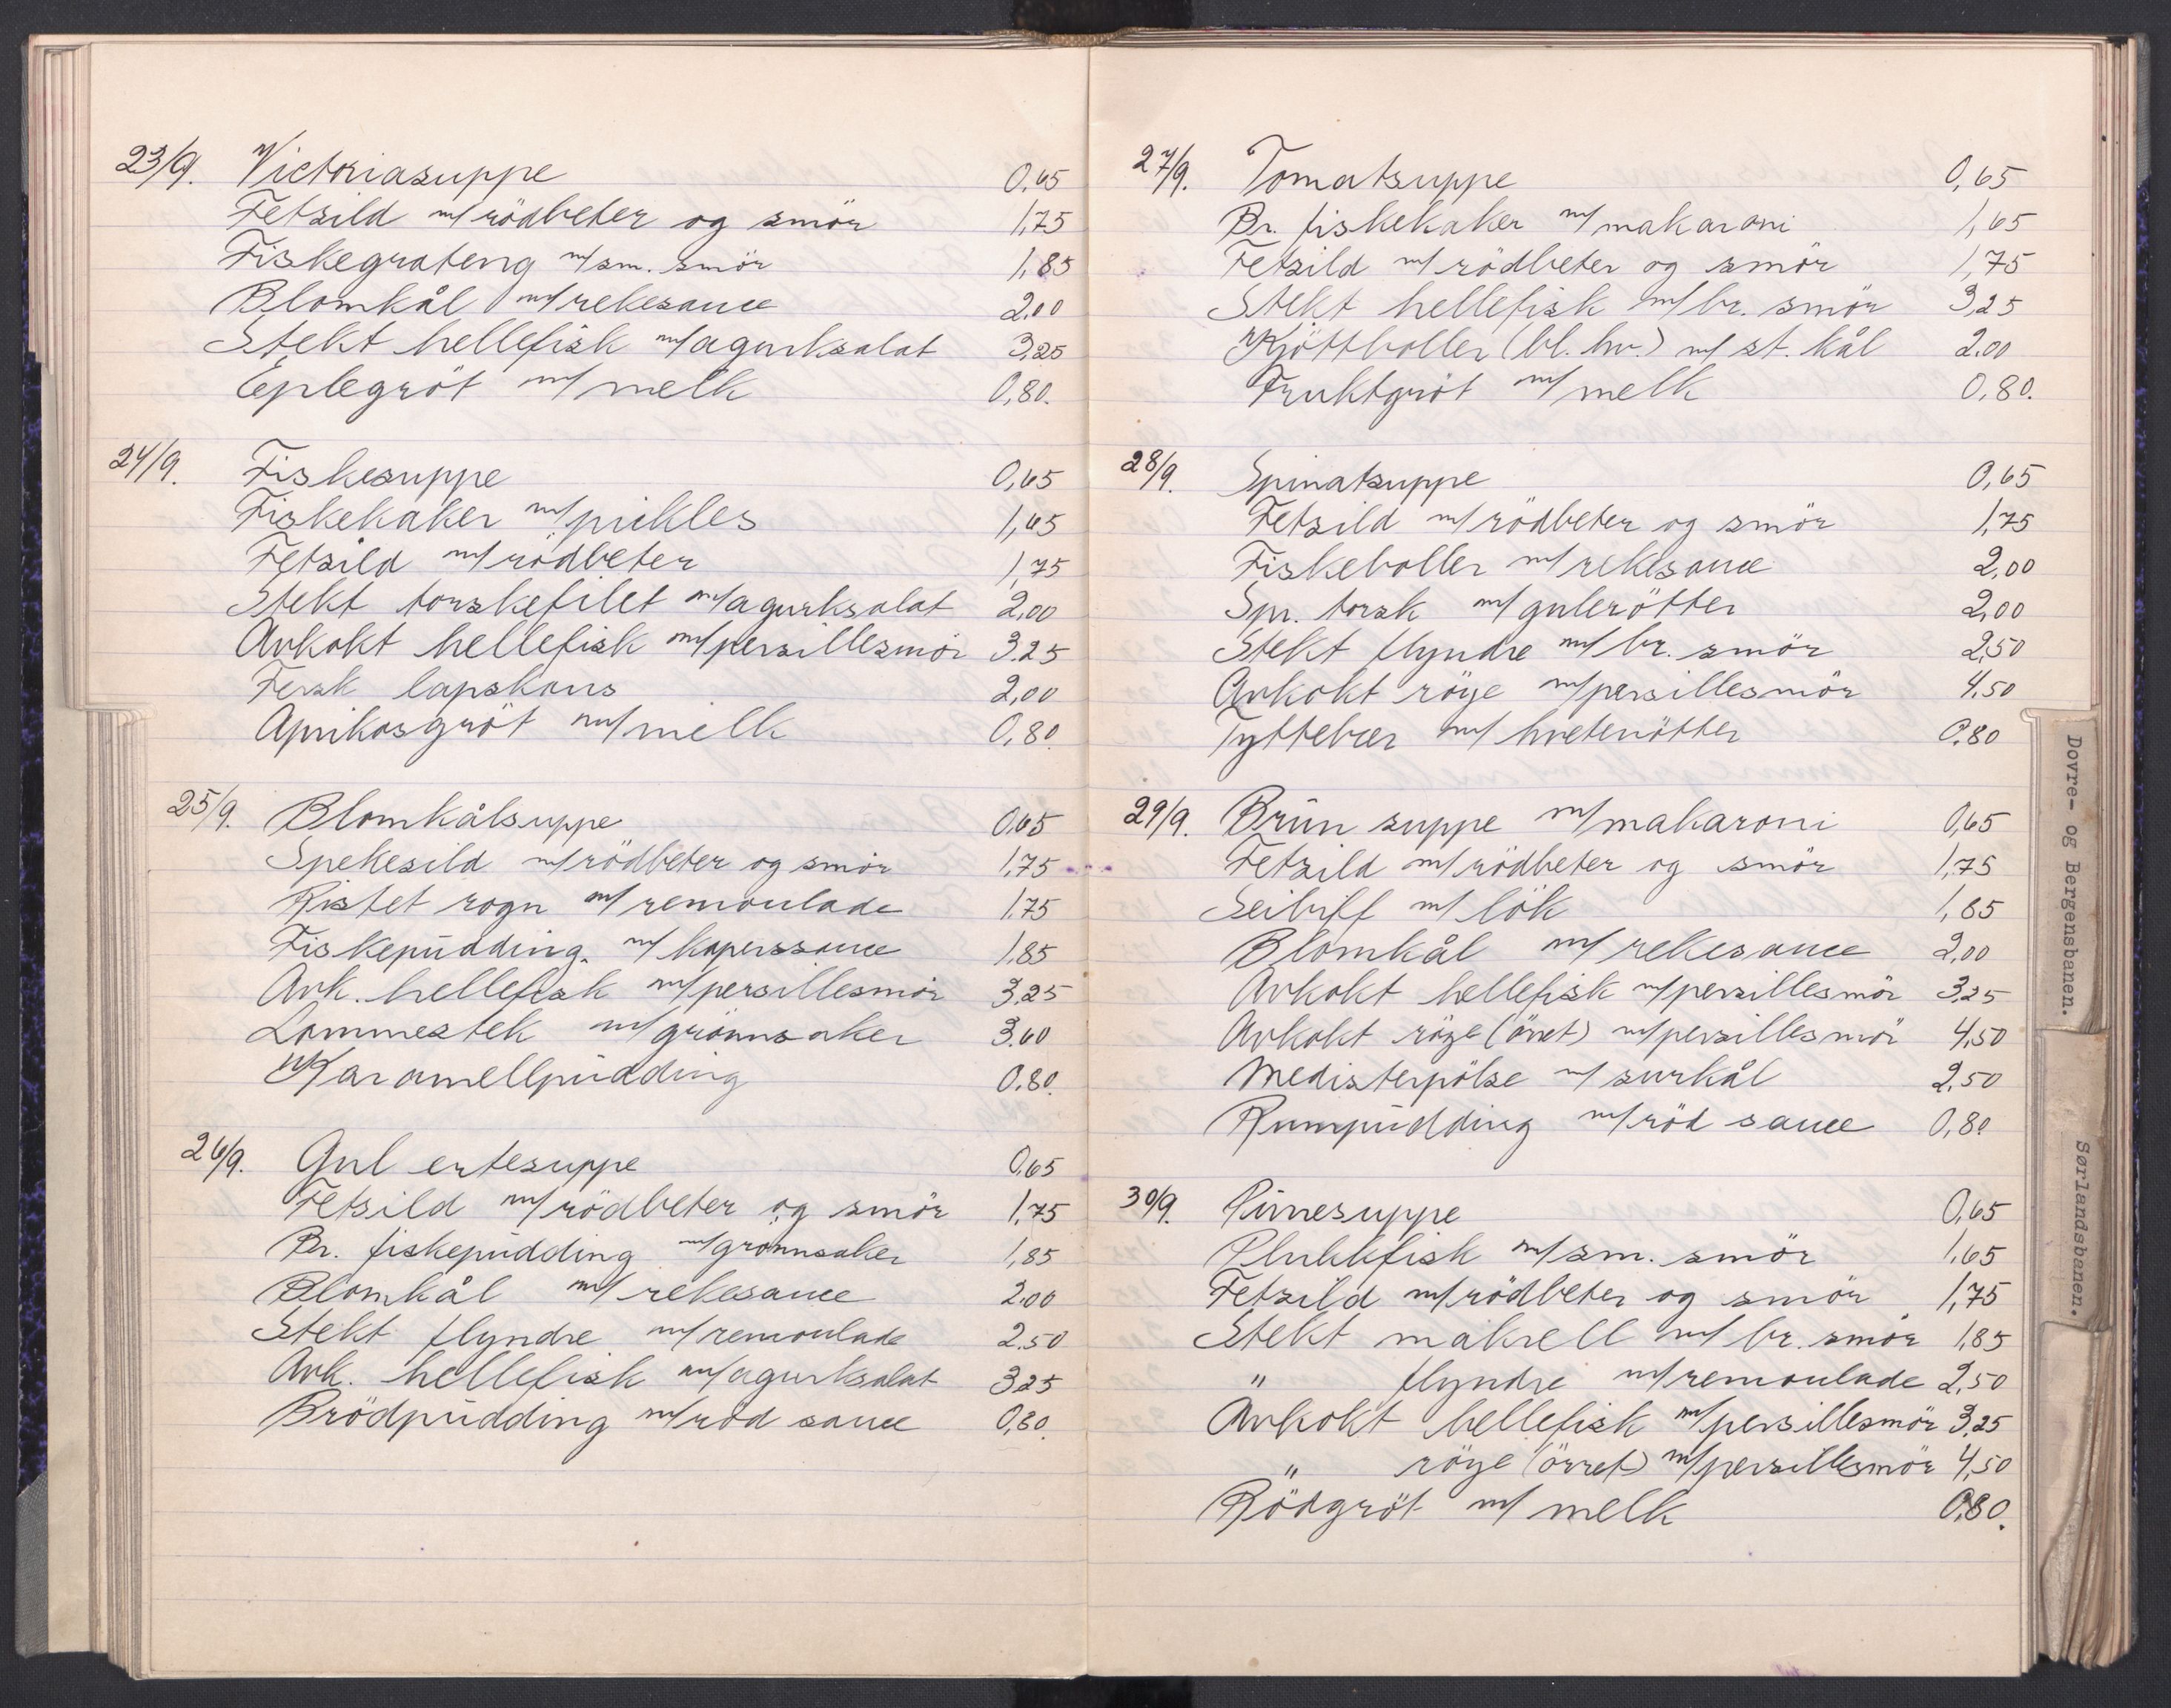 23/9. Victoriasuppe 0,65
Fetsild m/rödbeter og smör 1,75
Fiskegrateng m/sm. smör 1,85
Blomkål m/rekesauce 2.00
Stekt hellefisk m/agurksalat 3,25
Eplegröt m/melk 0,80.
24/9. Fiskesuppe 0,65
Fiskekaker m/pickles 1,65
Fetsild m/rödbeter 1,75
Stekt torskefilet m/agurksalat 2,00
Avkokt hellefisk m/persillesmör 3.25
Fersk lapskaus 2,00
Aprikosgröt m/melk 0,80.
25/9. Blomkålsuppe 0,65
Spekesild m/rödbeter og smör 1,75
Ristet rogn m/remoulade 1,75
Fiskepudding. m/kaperssauce 1,85
Avk. hellefisk m/persillesmör 3,25
Lammestek m/grönnsaker 3.60
Karamellpudding 0.80.
26/9. Gul ertesuppe 0,65
Fetsild m/rödbeter og smör 1,75
Br. fiskepudding m/grønnsaker 1,85
Blomkål m/rekesauce 2.00
Stekt flyndre m/remoulade 2.50
Avk. hellefisk m/agurksalat 3,25
Brödpudding m/röd sauce 0,80.
27/9. Tomatsuppe 0,65
Br. fiskekaker m/makaroni 1,65
Fetsild m/rödbeter og smör 1,75
Stekt hellefisk m/br. smör 3,25
Kjöttboller (bl. hv.) m/ st. kål 2.00
Fruktgröt m/melk 0,80.
28/9. Spinatsuppe 0,65
Fetsild m/rödbeter og smör 1,75
Fiskeboller m/rekesauce 2,00
Spr. torsk m/gulerötter 2,00
Stekt flyndre m/br. smör 2,50
Avkokt röye m/persillesmör 4,50
Tyttebær m/hvetenötter 0,80
29/9. Brun suppe m/makaroni 0,65
Fetsild m/rödbeter og smör 1,75
Seibiff m/lök 1,85
Blomkål m/rekesauce 2,00
Avkokt hellefisk m/persillesmör 3,25
Avkokt röye (örret) m/persillesmör 4,50
Medisterpölse m/surkål 2,50
Rumpudding m/röd sauce 0,80
30/9. Pinnesuppe 0,65
Plukkfisk m/sm. smör 1.65
Fetsild m/rödbeter og smör 1,75
Stekt makrell m/br. smör 1,85
" flyndre m/remoulade 2,50
Avkokt hellefisk m/persillesmör 3,25
" röye (örret) m/persillesmör 4,50
Rödgröt m/melk 0,80.
Dovre- og Bergensbanen.
Sørlandsbanen.